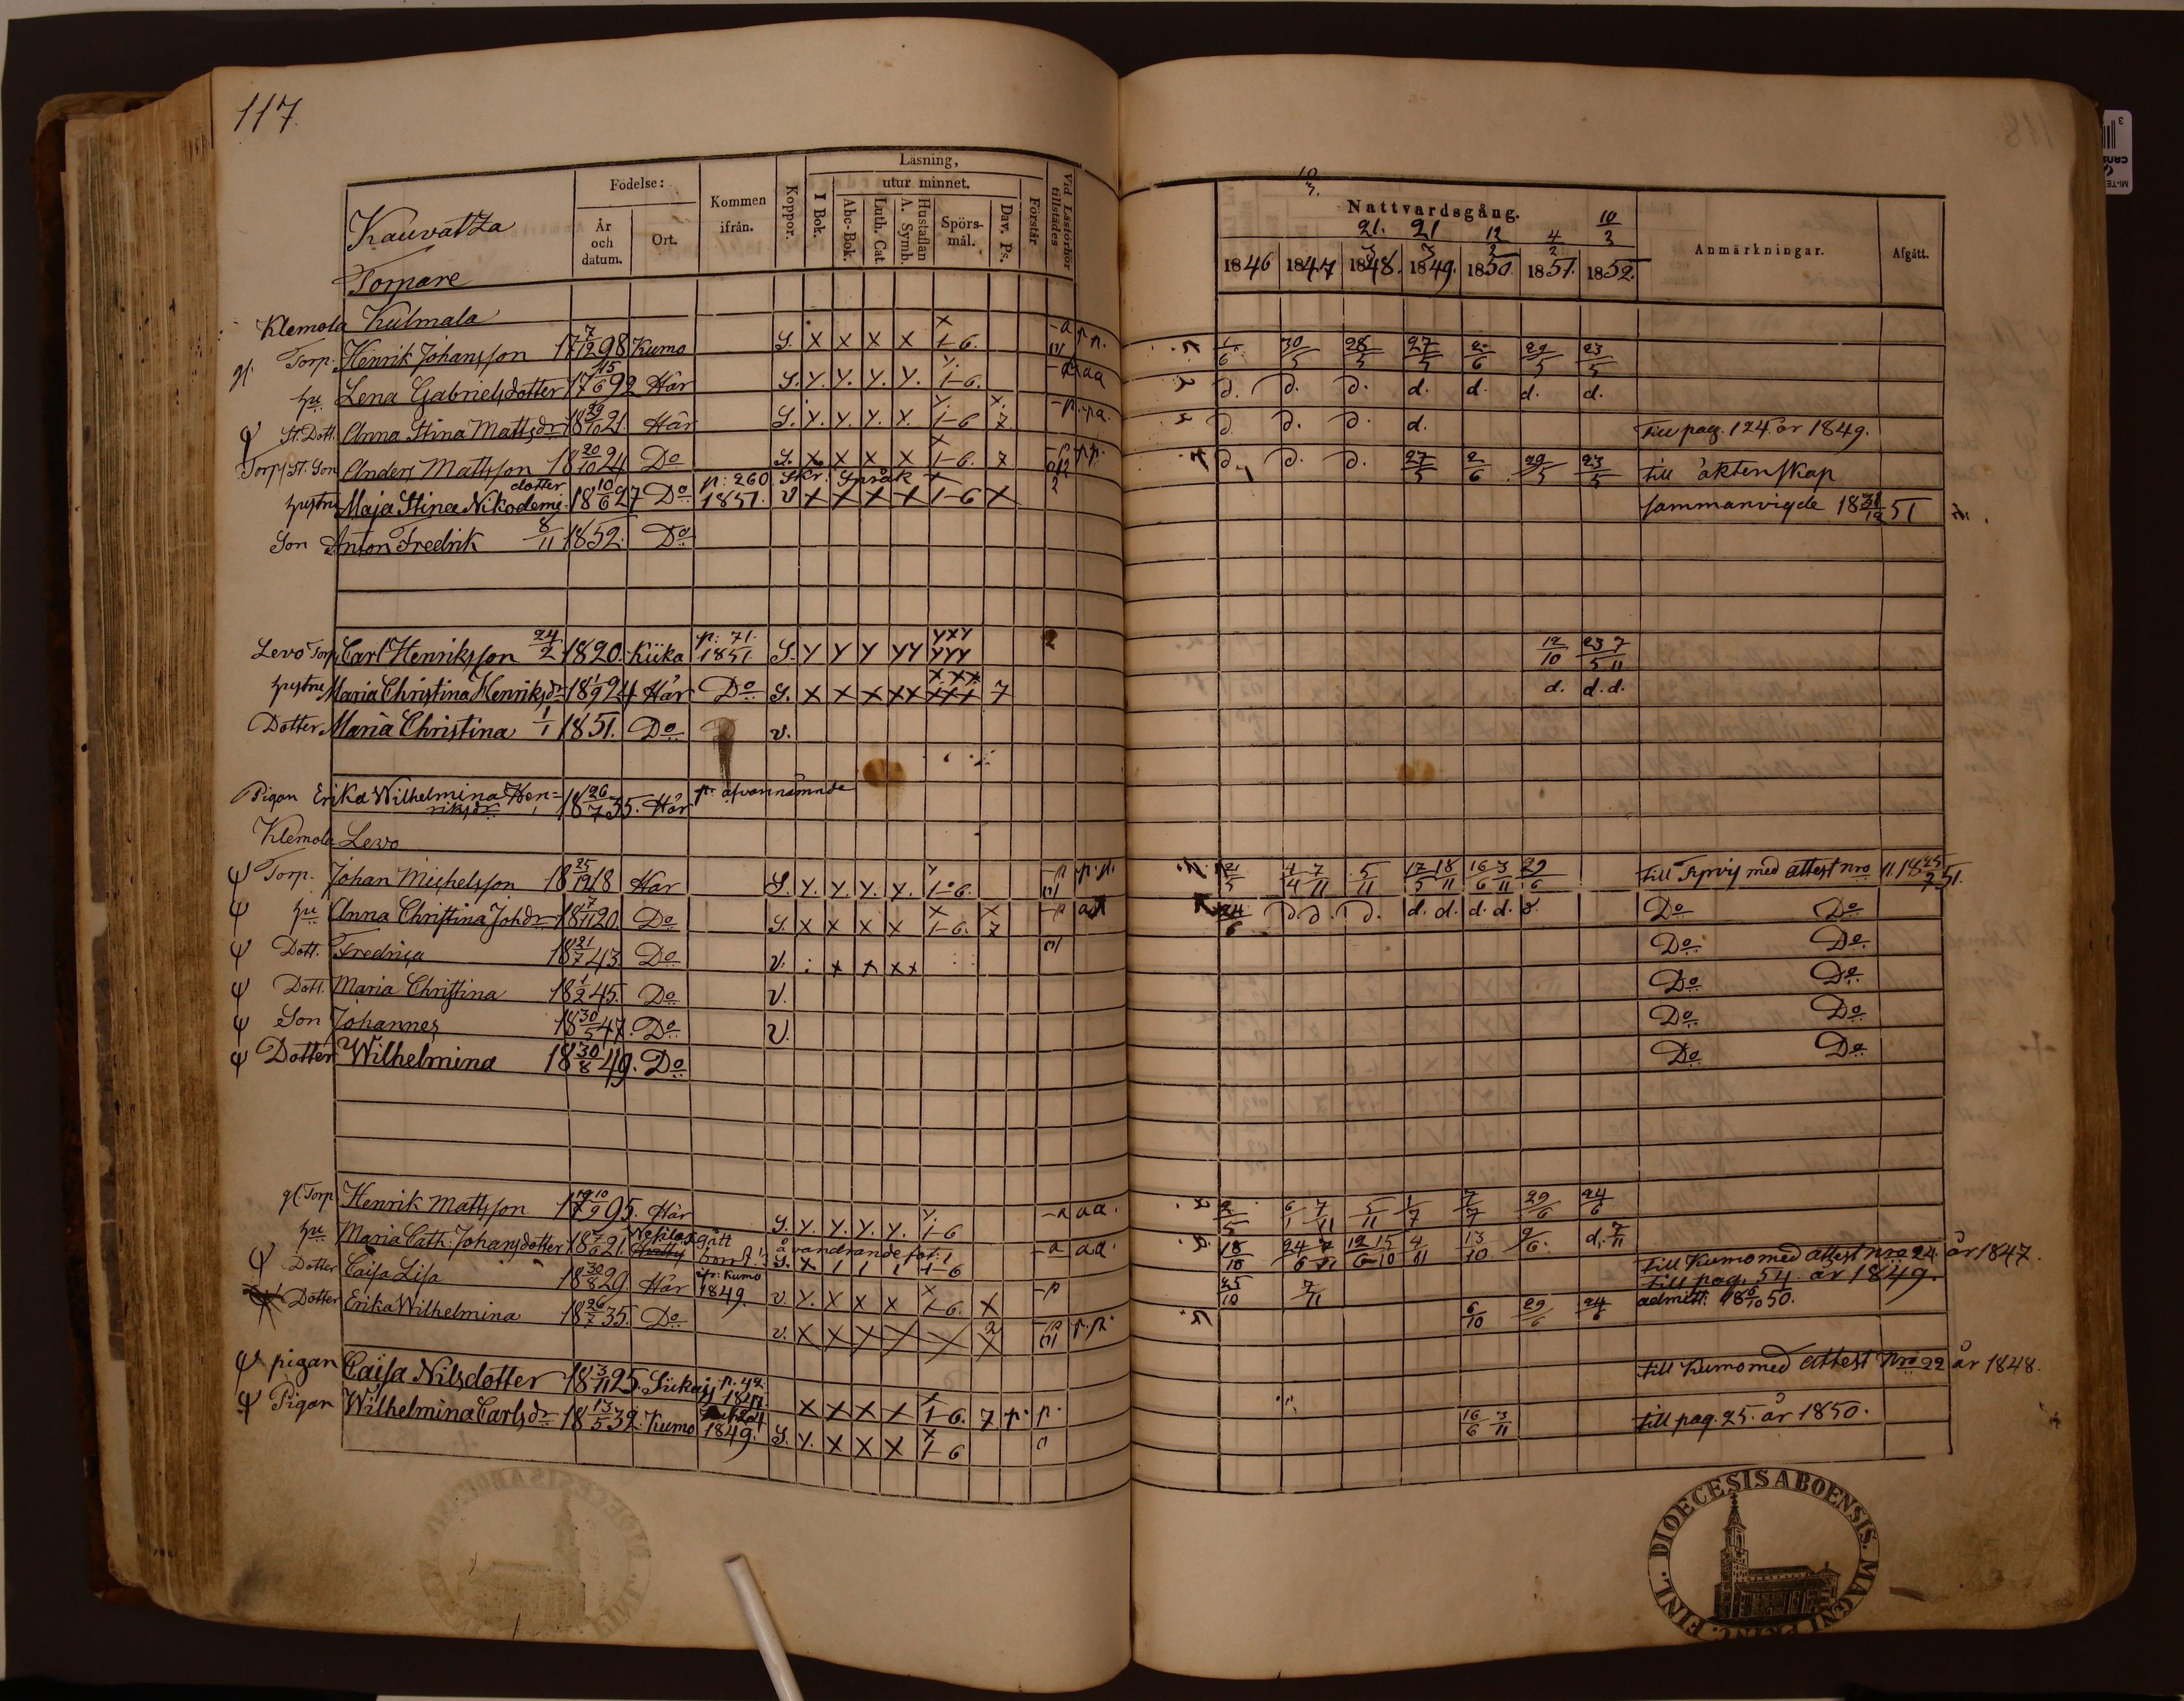 117.
Kauvatza
Torpare
Födelse:
År och datum.
Ort.
Kommen ifrån.
Koppor.
Läsning,
I Bok.
utur minnet.
Abc-Bok.
Luth. Cat.
Hustaflan A. Symb.
Spörsmål.
Dav. Ps.
Förstår
Vid Läsförhör tillstädes
Nattvardsgång.
10/3. 21/3 21/3 12/2 4/2 10/3
1846 1847 1848. 1849. 1850. 1851. 1852.
Anmärkningar.
Afgått.
Klemola Kulmala
Torp. Henrik Johansson 17 7/12 98 Kumo S. x x x x 1-6. 1/6 30/5 28/5 27/5 2/6 29/5 23/5
hu Lena Gabrielsdotter 17 15/6 92 Här S. y. y. y. y. 1-6. d. d. d. d. d. d. d.
St. Dott. Anna Stina Mattsdr 18 29/10 21. Här S. y. y. y. y. 1-6 7 d. d. d. d. till pag. 124 år 1849.
Torp St. Son Anders Mattsson 18 20/10 24 Do S. x x x x 1-6. 7 d. d. d. 27/5 2/6 29/5 23/5 till äktenskap
hustru Maja Stina Nikodemi dotter 18 10/6 27 Do p: 260 1851. v x x x x 1-6 x sammanvigde 18 31/12 51
Son Anton Fredrik 8/11 1852. Do
Levo Torp Carl Henriksson 24/2 1820. Kiika p: 71. 1851. S. y y y yy yyy 12/10 23/5 7/11
hustru Maria Christina Henriksdr 18 1/9 24 Här Do S. x x x xx xxx 7 d. d. d.
Dotter Maria Christina 1/1 1851. Do v.
Pigan Erika Wilhelmina Henriksdr 18 26/7 35. Här pr ofvannämnde
Klemola Levo
Torp. Johan Michelsson 18 25/12 18 Här S. y. y. y. y. 1-6. 21/5 4/4 7/11 5/11 17/5 18/11 16/6 3/11 29/6 till Tyrvis med attest nro 11. 18 25/7 51.
hu Anna Christina Johdr 18 7/11 20. Do S. x x x x 1-6. 7 24/6 d. d. d. d. d. d. d. Do Do
Dott. Fredrica 18 21/7 43. Do v. x x xx Do Do
Dott. Maria Christina 18 1/2 45. Do v. Do Do
Son Johannes 18 30/5 47. Do v. Do Do
Dotter Wilhelmina 18 30/8 49. Do Do Do
gl. Torp. Henrik Mattsson 17 10/9 95. Här S. y. y. y. y. 1-6 aa. 2/5 6/1 7/11 5/11 1/7 7/7 29/6 24/6
hu Maria Cath. Johansdotter 18 7/6 21. S. x 1-6 aa. 18/10 24/6 7/11 12/6 15/10 4/11 13/10 9/6. d. 7/11
Dotter Caisa Lisa 18 30/8 29. Här ifr: Kumo 1849. v. y. x x x 1-6. x 25/10 7/11 till Kumo med attest nro 24. år 1847.
till pag. 54 år 1849.
Dotter Erika Wilhelmina 18 26/7 35. Do v. x x x 6/10 29/6 24/6 admitt: 18 6/10 50.
pigan Caisa Nilsdotter 18 13/11 25. p. 42. x x x x 1-6. 7 p. p. till Kumo med attest nro 22 år 1848.
Pigan Wilhelmina Carlsdr 18 13/5 32. Kumo 1849. S. y. x x x 1-6 16/6 3/11 till pag. 25. år 1850.
DIOECESIS ABOENSIS. MAGNI PRINC. FINL.